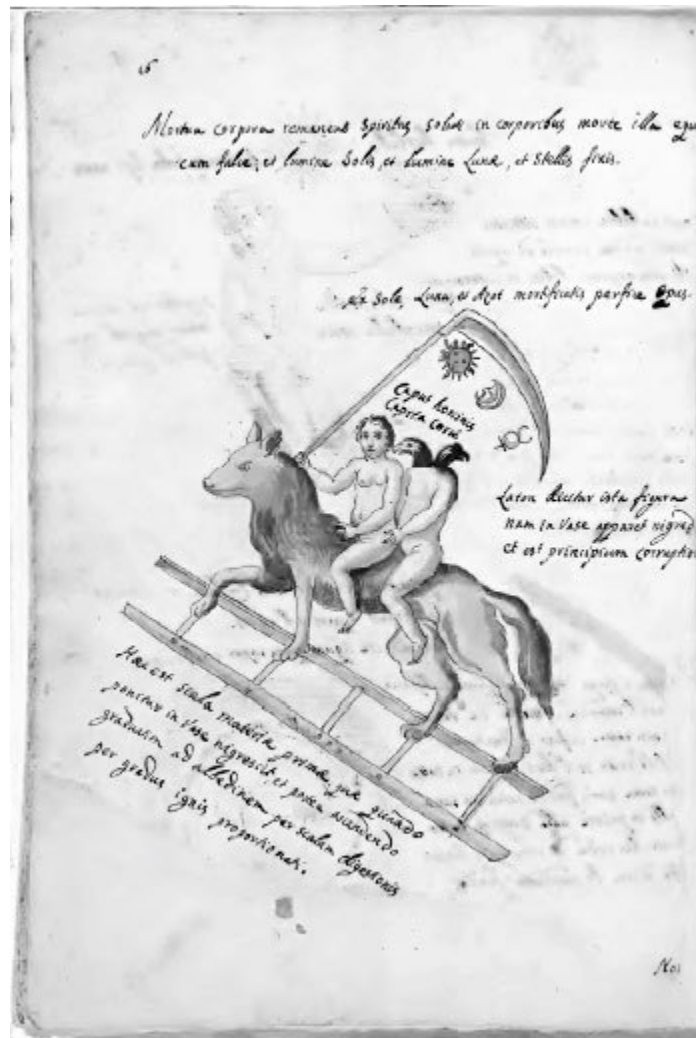 16
Mortua corpora remanent spiritus solus in corporibus movet illa equ
cum falce, et lumine Solis, et lumine Lunæ, et Stellis fixis.
ex Sole, Luna, et Azot mortificatis perfice opus.
Caput hominis
Capita Corvi
Laton dicitur ista figura
nam in Vase apparet nigred
et est principium corruptio
Hæc est scala materiæ primæ, quæ quando
ponitur in Vase nigrescit, et postea ascendendo
gradatim ad albedinem per scalam digestionis
per gradus ignis proportionati.
Mor